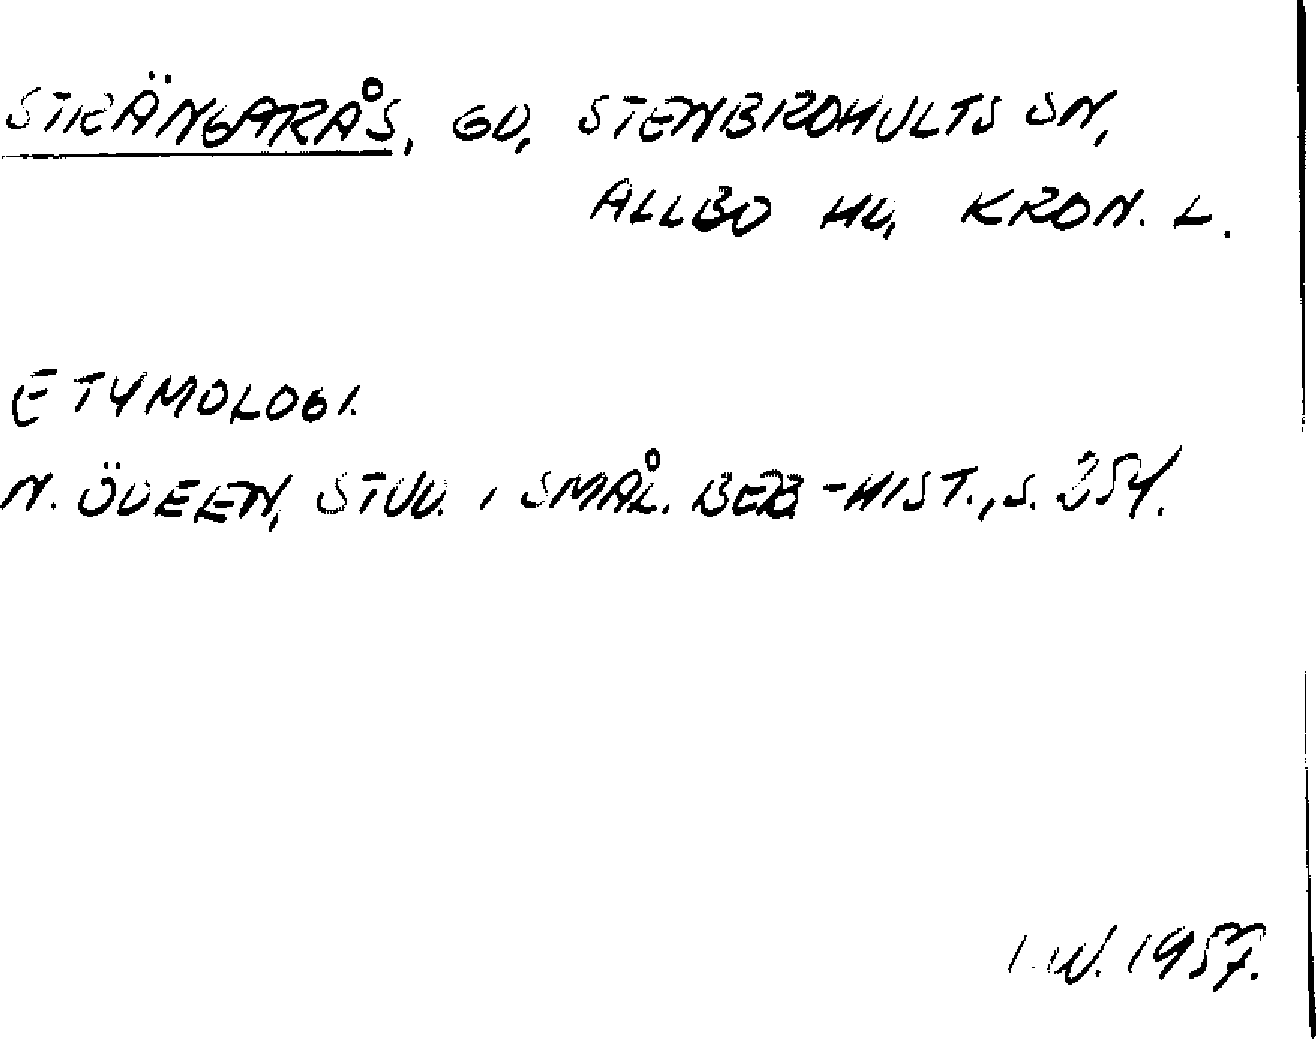 STRÄNGARÅS, GD, STENBROHULTS SN,
ALLBO HD, KRON. L.
ETYMOLOGI.
N. ÖDEEN, STUD. I SMÅL. BEB.-HIST., S. 254.
I.W. 1957.